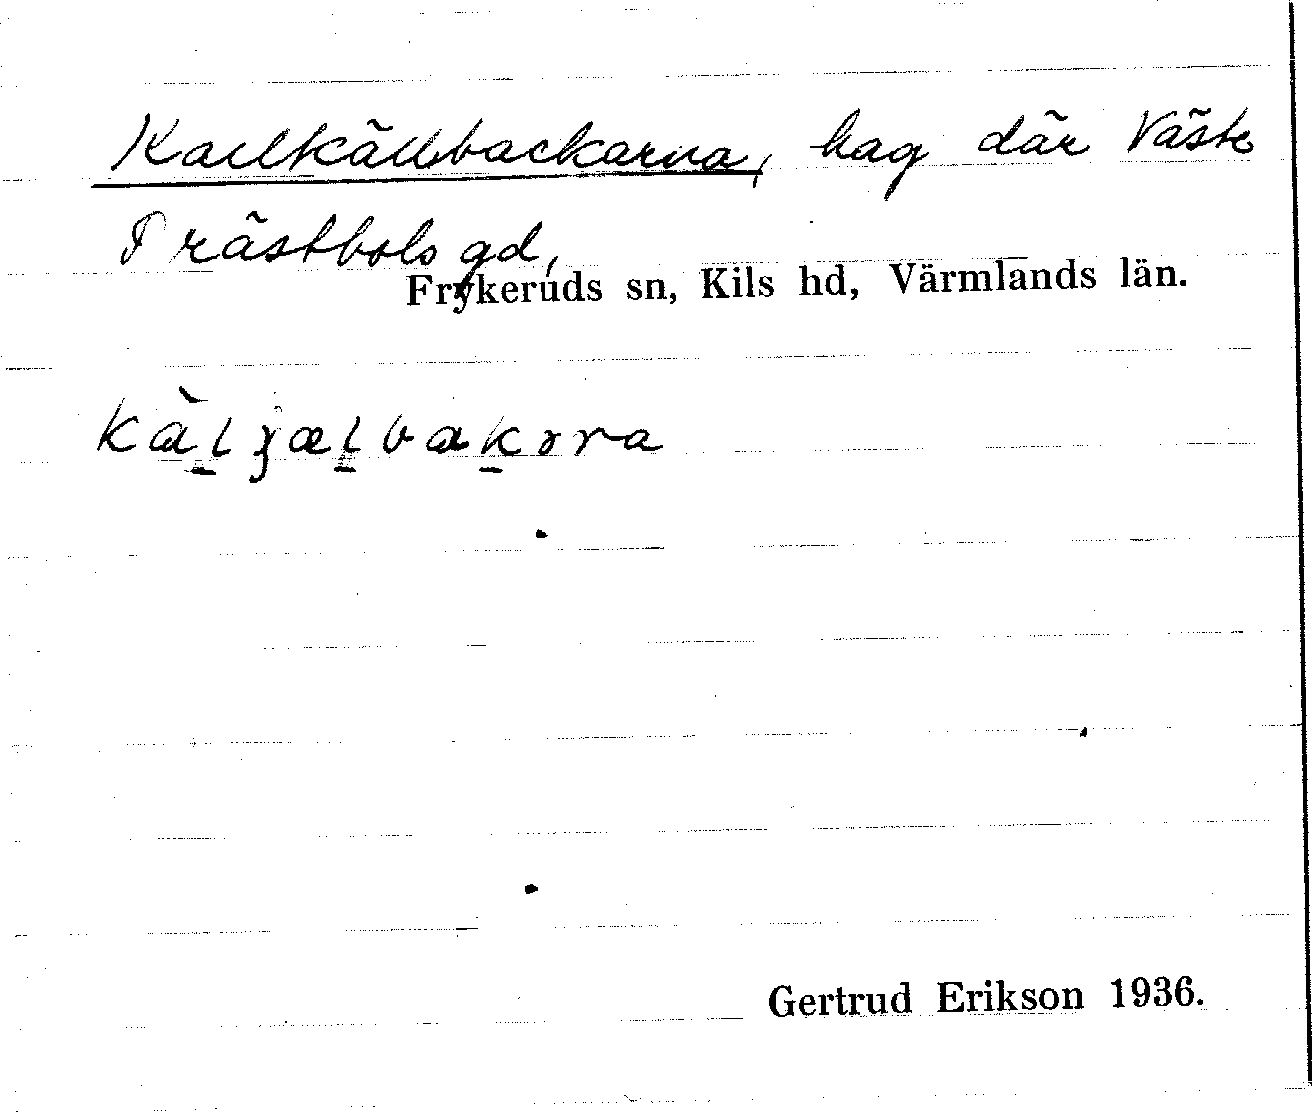 Kallkällbackarna, hag där Väste
Prästbols gd,
Frykeruds sn, Kils hd, Värmlands län.
Gertrud Erikson 1936.